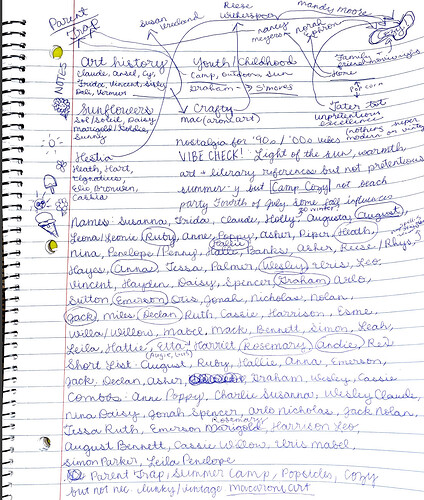 Parent Trap
Susan Vreeland
Reese Witherspoon
nancy meyers
norah ephron
mandy moore
Cozy
NOTES
Art history
Claude, Ansel, Cy,
Frida, Vincent,
Youth/Childhood
Camp, outdoors, sun
Graham → S'mores
Family
Home
Pop corn
Sunflowers
Sol/Soleil, Daisy
Marigold/Goldie,
Sunny
Crafty
mac(aroni art)
Tater tot
unpretentious
excellence
(nothing super modern or vintage)
nostalgia for '90s/'00s vibes
Hestia
Heath, Hart,
Ignatius
Elio Bronwen,
Cassia
VIBE CHECK! Light of the sun, warmth
art + literary references but not pretentious
summer-y but Camp Cozy not beach
party Fourth of July some fall influences
Names: Susanna, Frida, Claude, Holly, Augusta, August,
Leona/Leonie Ruby, Anne, Poppy, Asher, Piper, Heath,
Hallie
Nina, Penelope/Penny, Hattie, Banks, Asher, Reese/Rhys,
Hayes, Anna, Tessa, Palmer, Wesley, Iris, Leo,
Vincent, Hayden, Daisy, Spencer, Graham, Arlo,
Sutton, Emerson, Otis, Jonah, Nicholas, Nolan,
Jack, Miles, Declan, Ruth, Cassie, Harrison, Esme,
Willa/Willow, Mabel, Mack, Bennett, Simon, Leah,
Leila, Hattie, Etta, Harriet, Rosemary, Andie, Red
(Augie, Gus)
Short List: August, Ruby, Hallie, Anna, Emerson,
Jack, Declan, Asher, Graham, Wesley, Cassie
Combos: Anne Poppy, Charlie Susanna, Wesley Claude,
Nina Daisy, Jonah Spencer, Arlo Nicholas, Jack Nolan,
Rosemary
Tessa Ruth, Emerson Marigold, Harrison Leo,
August Bennett, Cassie Willow, Iris Mabel,
Simon Parker, Leila Penelope
Parent Trap, Summer Camp, Popsicles, Cozy
but not nec. funky/vintage Macaroni Art